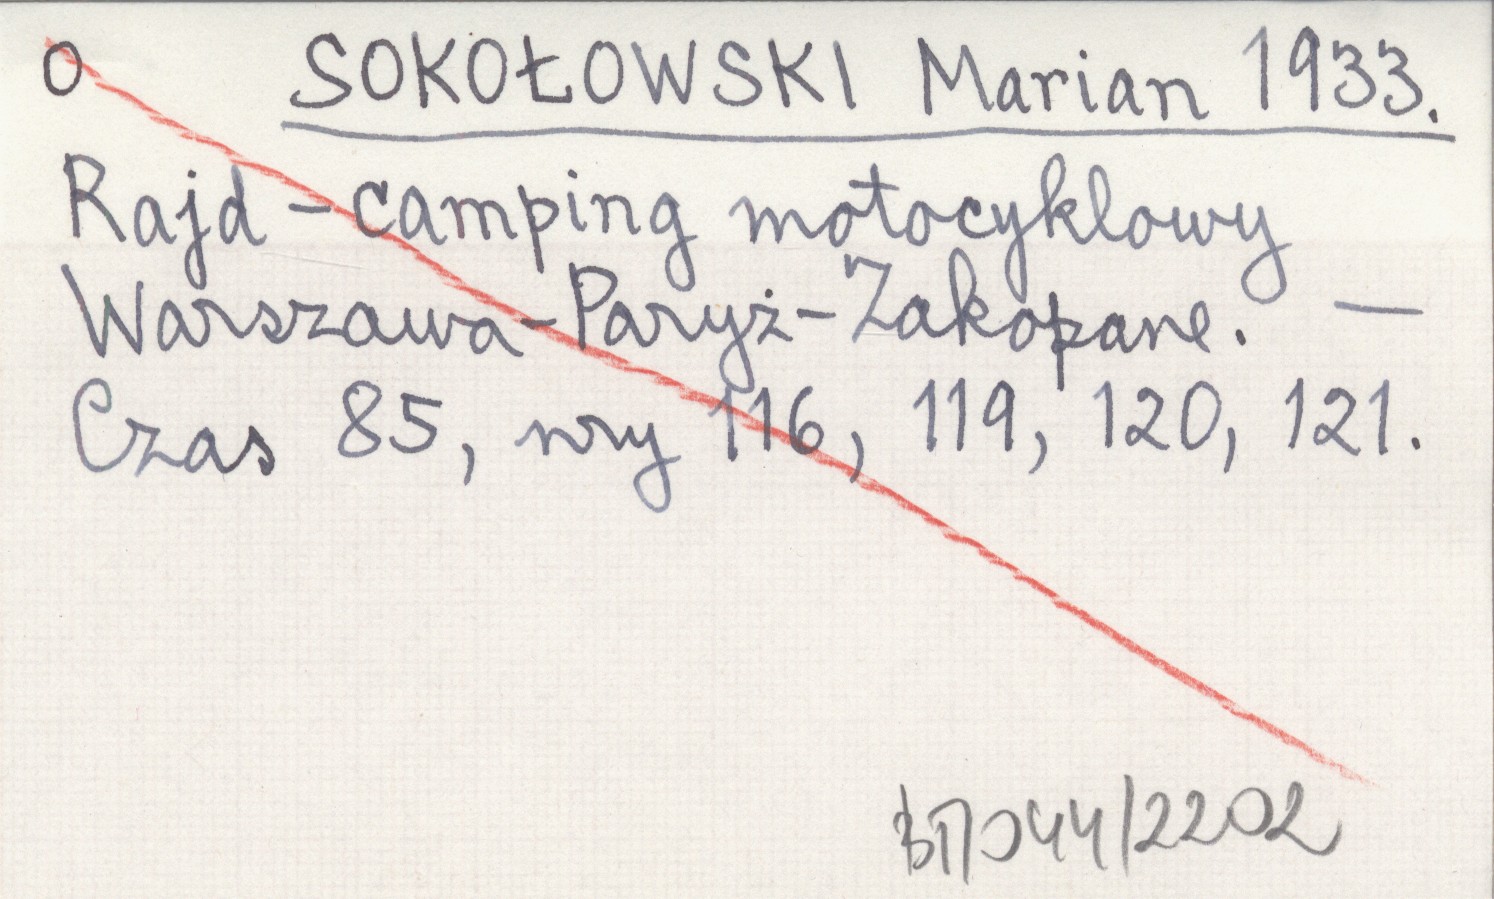 O SOKOŁOWSKI Marian 1933.
Rajd - camping motocyklowy
Warszawa-Paryż-Zakopane. —
Czas 85, nry 116, 119, 120, 121.
044/2202